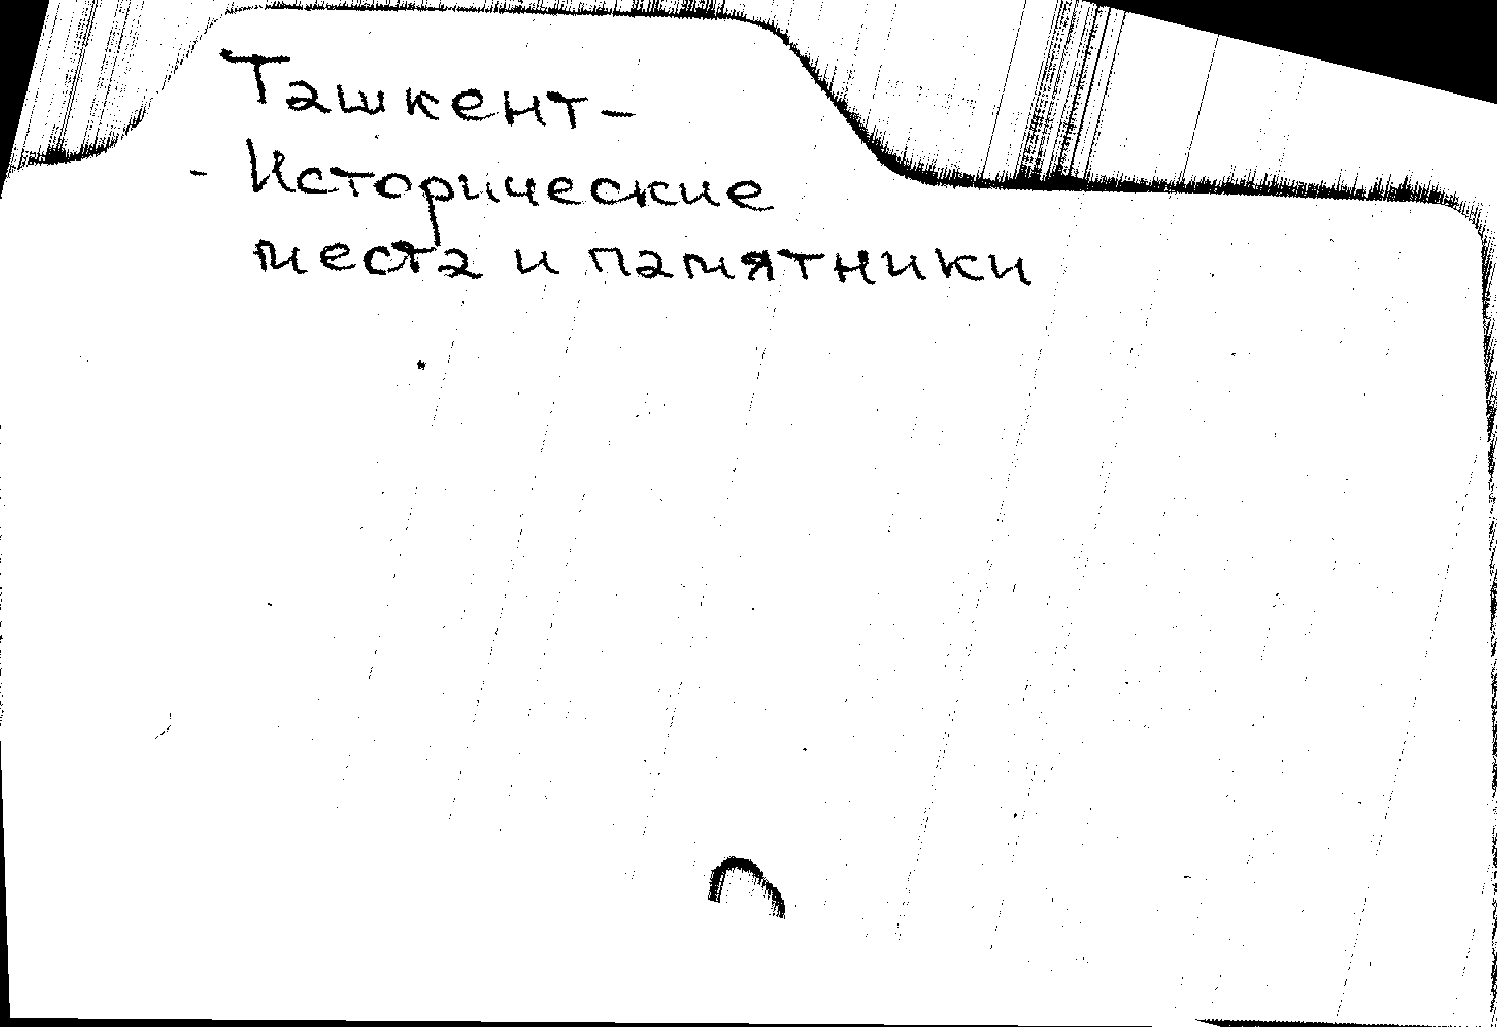 Ташкент-
- Исторические
места и памятники